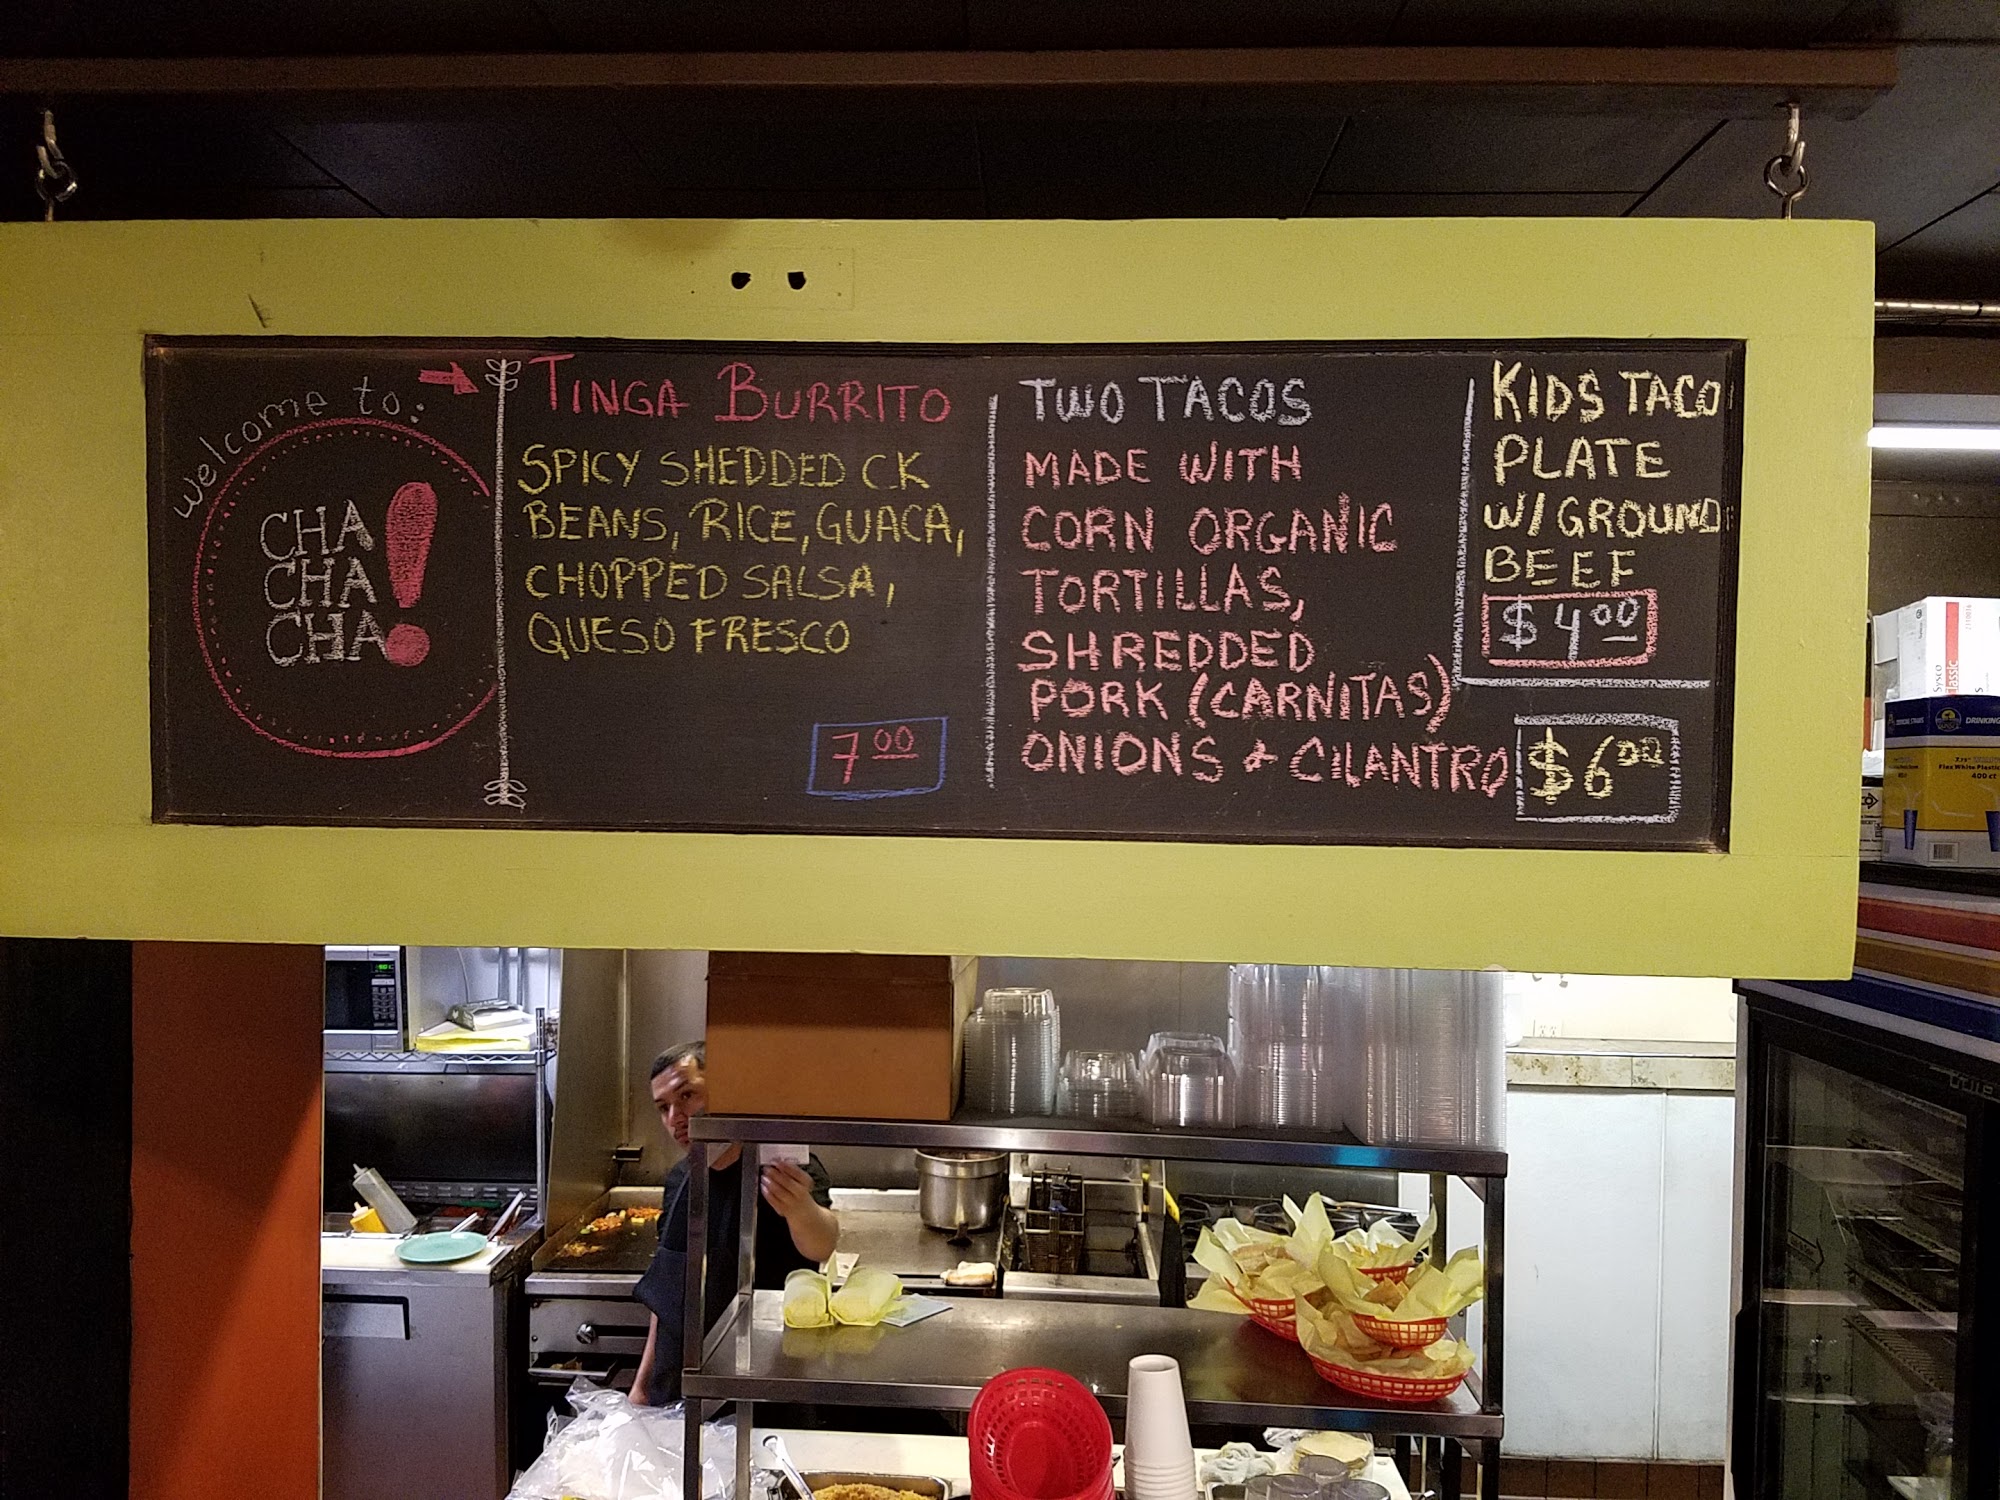 welcome to:
CHA
CHA
CHA!
TINGA BURRITO
SPICY SHEDDED CK
BEANS, RICE, GUACA,
CHOPPED SALSA,
QUESO FRESCO
7 00
TWO TACOS
MADE WITH
CORN ORGANIC
TORTILLAS,
SHREDDED
PORK (CARNITAS)
ONIONS & CILANTRO
$6 00
KIDS TACO
PLATE
W/ GROUND
BEEF
$4 00
Sysco
Classic
DRINKING
Flex White Plastic
400 ct